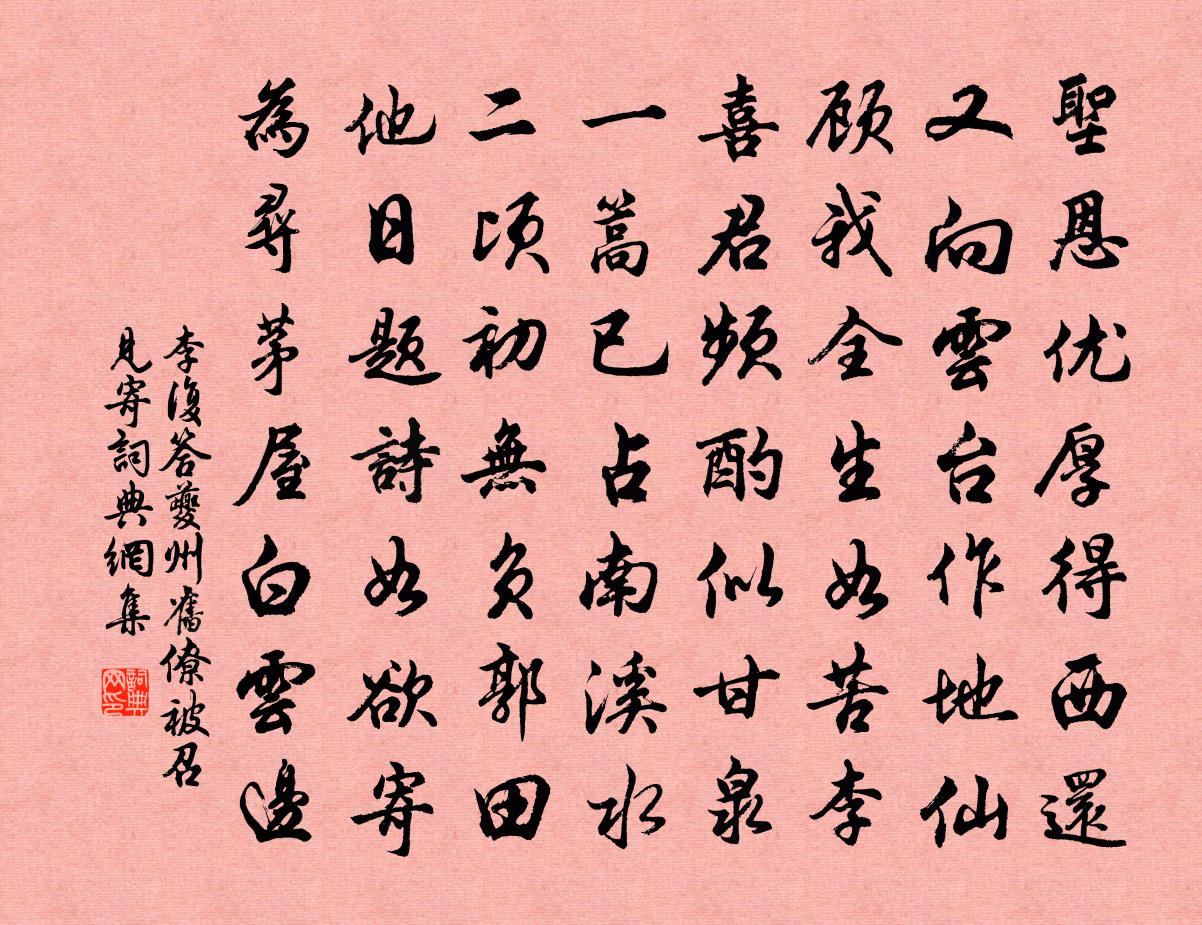 聖恩优厚得西還
又向雲台作地仙
顾我全生如苦李
喜君频酌似甘泉
一篙已占南溪水
二顷初無负郭田
他日题詩如欲寄
為尋茅屋白雲邊
李復答夔州舊僚被召
見寄詞典網集
詞典网印